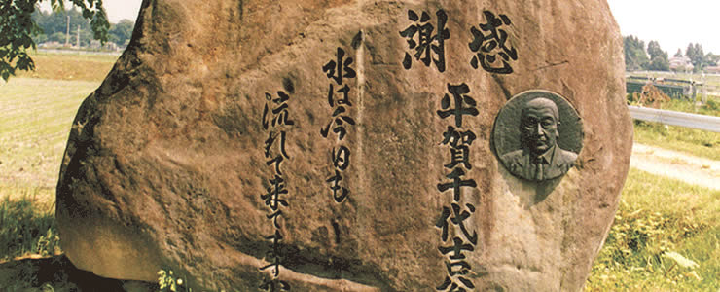 感謝
平賀千代吉
水は今日も
流れて来てますか